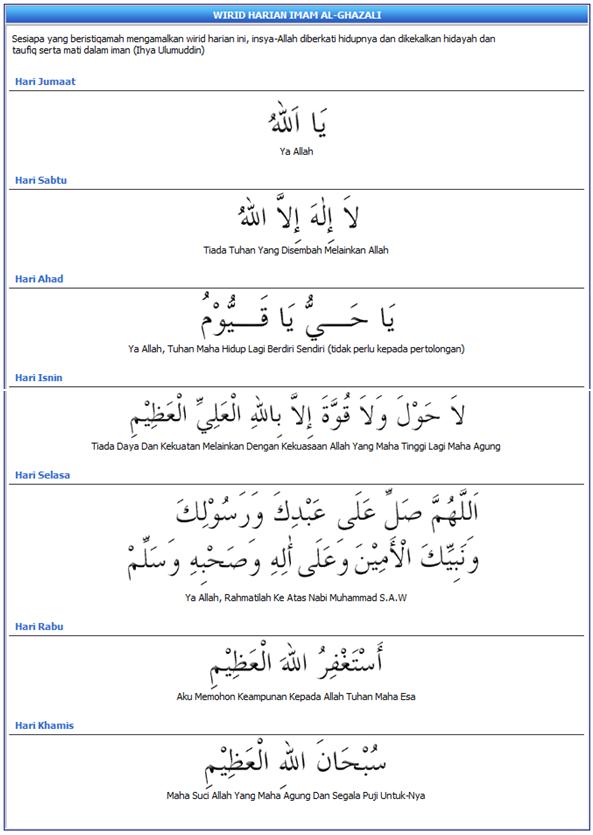 WIRID HARIAN IMAM AL-GHAZALI
Sesiapa yang beristiqamah mengamalkan wirid harian ini, insya-Allah diberkati hidupnya dan dikekalkan hidayah dan
taufiq serta mati dalam iman (Ihya Ulumuddin)
Hari Jumaat
يَا اَللهُ
Ya Allah
Hari Sabtu
لاَ إِلٰهَ إِلاَّ اللهُ
Tiada Tuhan Yang Disembah Melainkan Allah
Hari Ahad
يَا حَـــيُّ يَا قَـــيُّوْمُ
Ya Allah, Tuhan Maha Hidup Lagi Berdiri Sendiri (tidak perlu kepada pertolongan)
Hari Isnin
لاَ حَوْلَ وَلاَ قُوَّةَ إِلاَّ بِاللهِ الْعَلِيِّ الْعَظِيْمِ
Tiada Daya Dan Kekuatan Melainkan Dengan Kekuasaan Allah Yang Maha Tinggi Lagi Maha Agung
Hari Selasa
اَللَّهُمَّ صَلِّ عَلَى عَبْدِكَ وَرَسُوْلِكَ
وَنَبِيِّكَ الْأَمِيْنَ وَعَلَى أٰلِهِ وَصَحْبِهِ وَسَلِّمْ
Ya Allah, Rahmatilah Ke Atas Nabi Muhammad S.A.W
Hari Rabu
أَسْتَغْفِرُ اللهَ الْعَظِيْمِ
Aku Memohon Keampunan Kepada Allah Tuhan Maha Esa
Hari Khamis
سُبْحَانَ اللهِ الْعَظِيْمِ
Maha Suci Allah Yang Maha Agung Dan Segala Puji Untuk-Nya